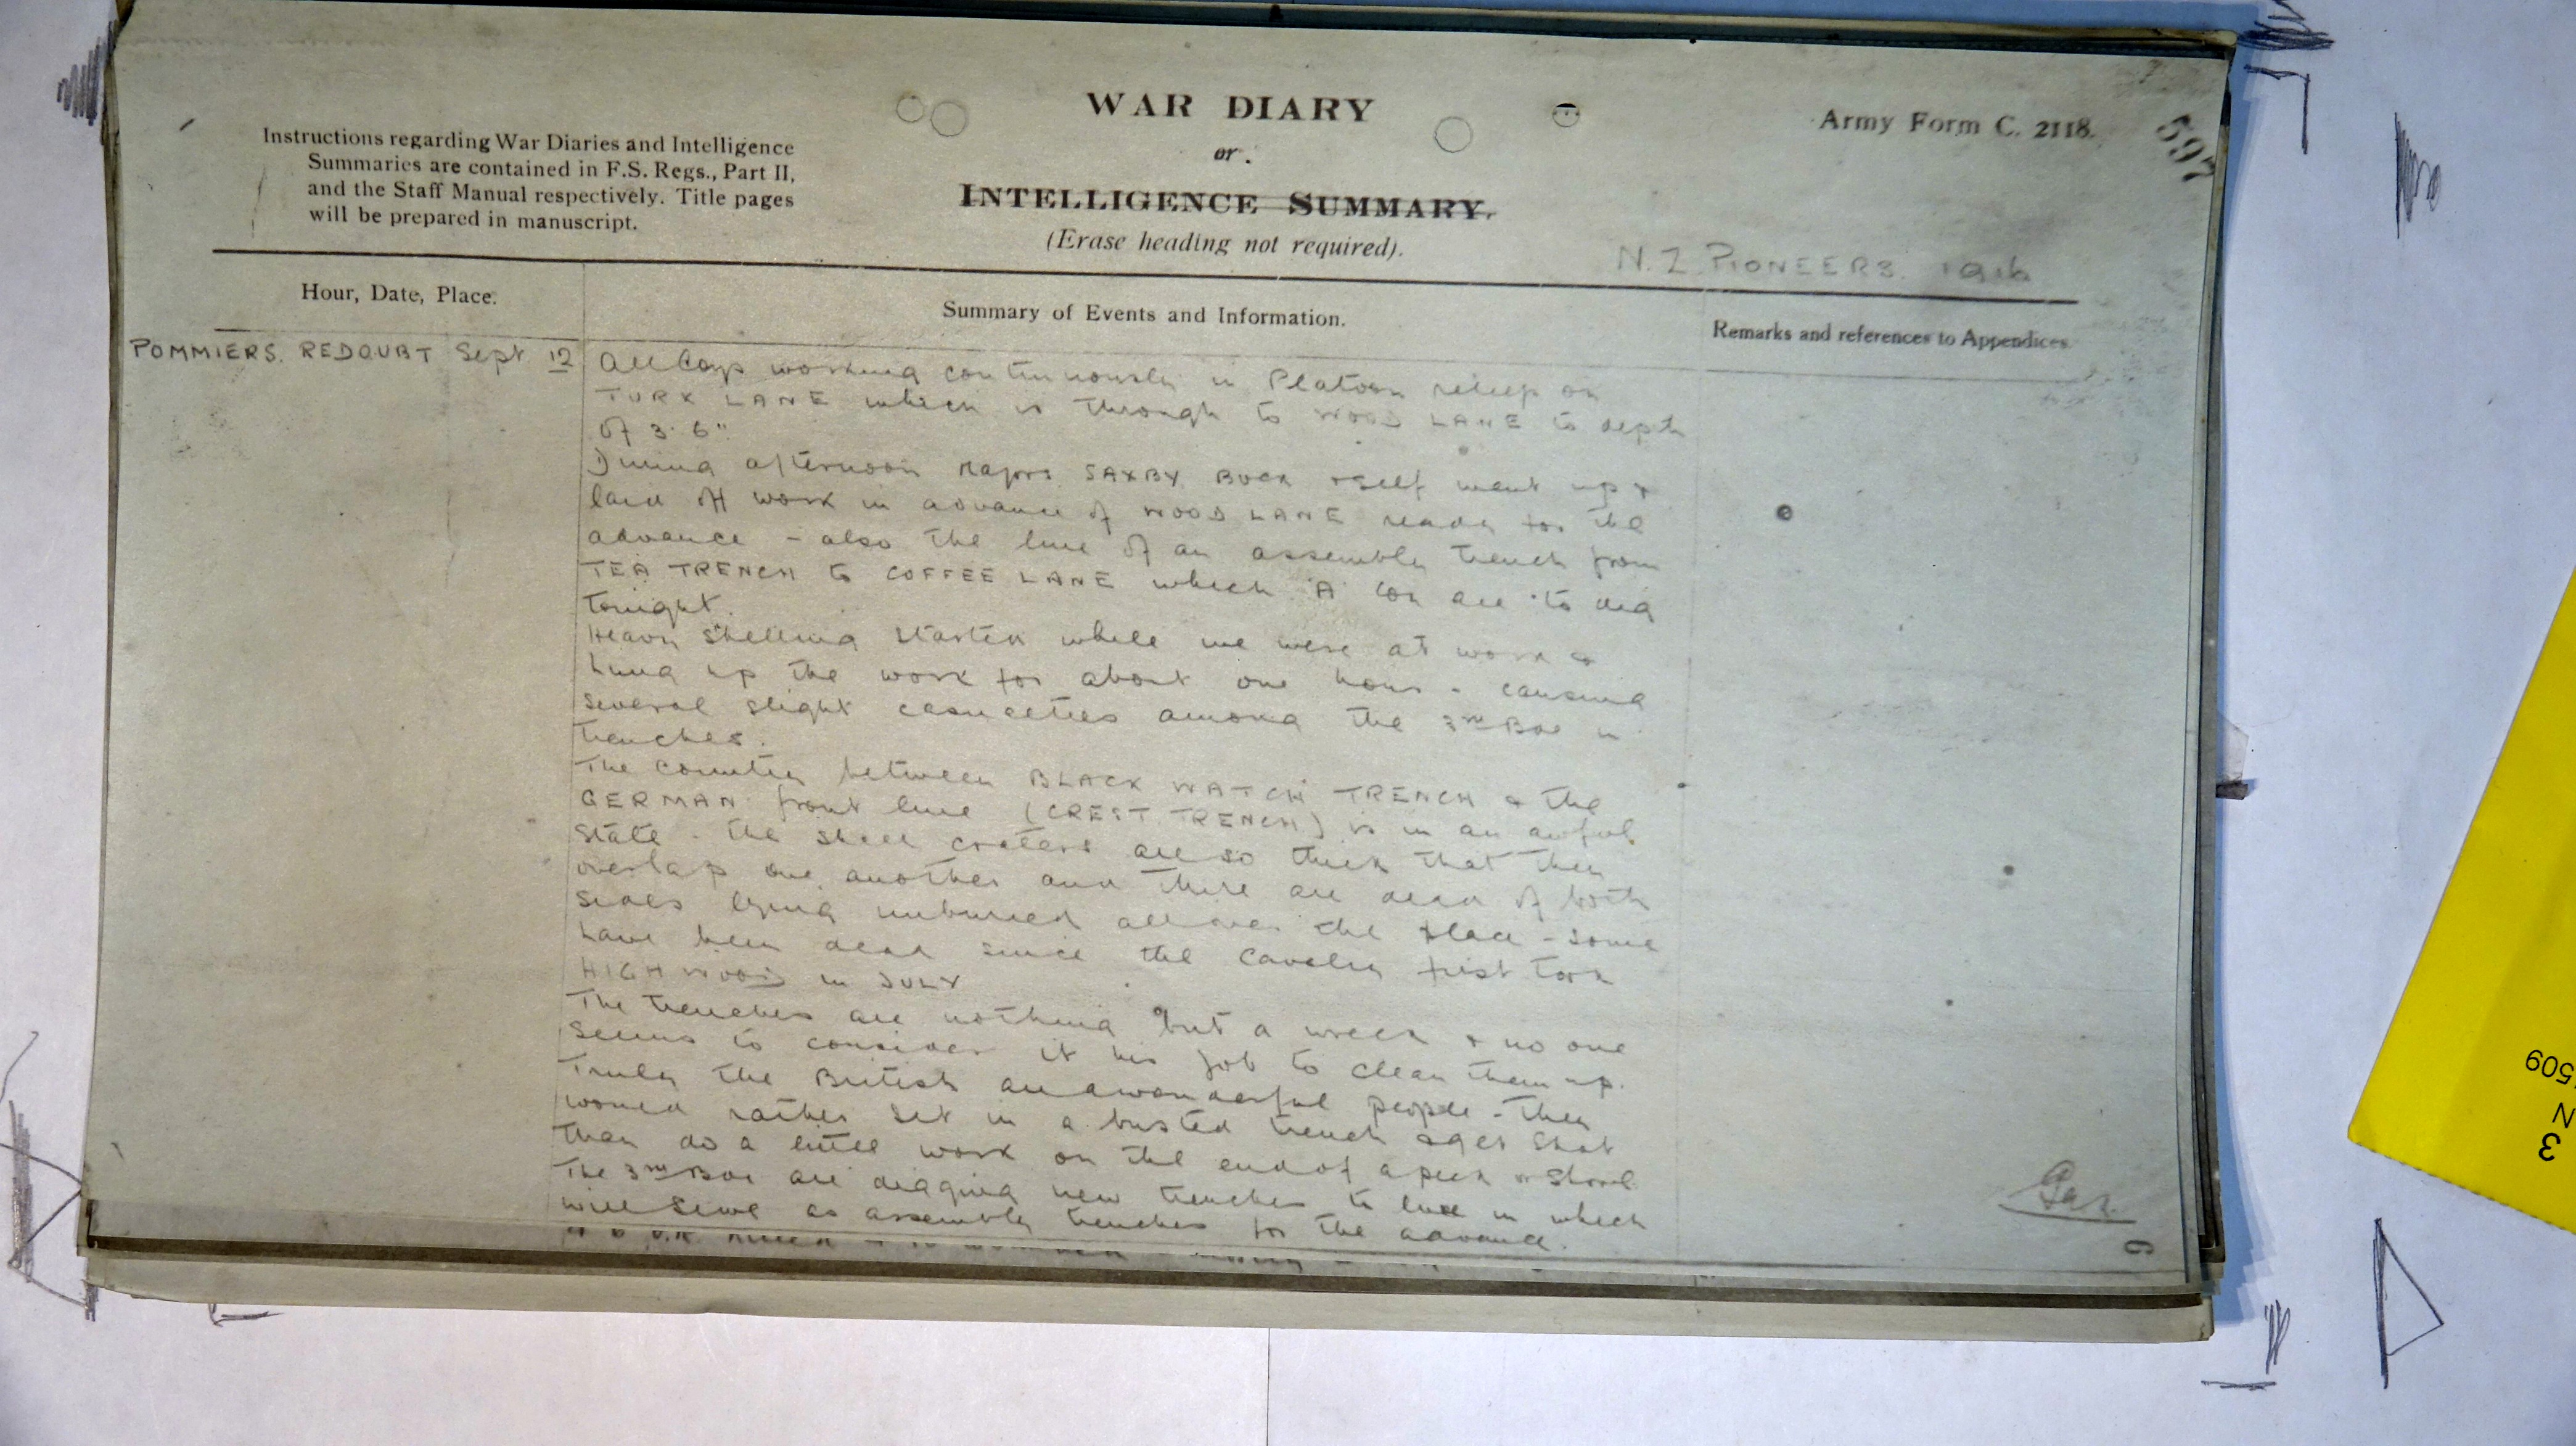 WAR DIARY
or
INTELLIGENCE SUMMARY.
(Erase heading not required).
Instructions regarding War Diaries and Intelligence
Summaries are contained in F.S. Regs., Part II,
and the Staff Manual respectively. Title pages
will be prepared in manuscript.
Army Form C. 2118.
597
N.Z. PIONEERS. 1916
Hour, Date, Place.
Summary of Events and Information.
Remarks and references to Appendices.
POMMIERS. REDOUBT Sept 12
All Coys working continuously in Platoon reliefs on
TURK LANE which is through to WOOD LANE to depth
of 3' 6"
During afternoon Majors SAXBY BUCK & self went up &
laid off work in advance of WOOD LANE ready for the
advance - also the line of an assembly trench from
TEA TRENCH to COFFEE LANE which A Coy are to dig
tonight.
Heavy shelling started while we were at work &
hung up the work for about one hour - causing
several slight casualties among the 3rd Bde in
trenches.
The country between BLACK WATCH TRENCH & the
GERMAN front line (CREST TRENCH) is in an awful
state - the shell craters are so thick that they
overlap one another and there are dead of both
sides lying unburied all over the place - some
have been dead since the Cavalry first took
HIGH WOOD in JULY
The trenches are nothing but a wreck & no one
seems to consider it his job to clean them up.
Truly the British are a wonderful people - they
would rather sit in a busted trench & get shot
than do a little work on the end of a pick or shovel
The 3rd Bde are digging new trenches to live in which
will serve as assembly trenches for the advance.
6
509
N
3